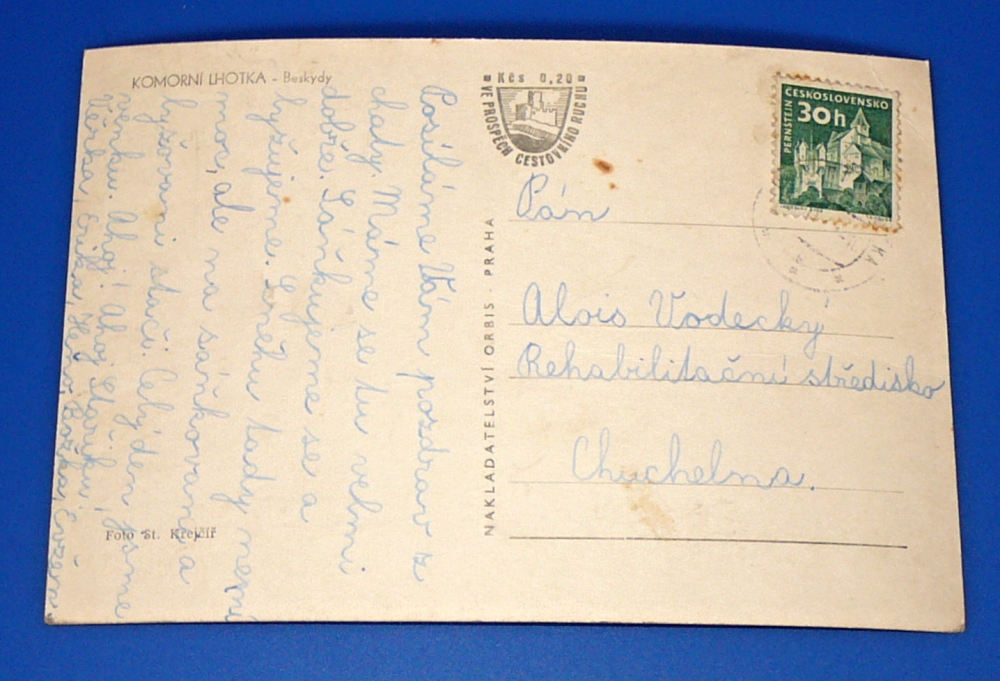 KOMORNÍ LHOTKA - Beskydy
Posíláme Vám pozdrav z
chaty. Máme se tu velmi
dobře. Sáňkujeme se a
lyžujeme. Sněhu tady není
moc, ale na sáňkovaní a
lyžovaní stačí. Celý den jsme
venku. Ahoj! Ahoj
Věrka, Erika,
Foto St. Krejčíř
Kčs 0,20
VE PROSPĚCH CESTOVNÍHO RUCHU
NAKLADATELSTVÍ ORBIS · PRAHA
ČESKOSLOVENSKO
30h
PERNŠTEJN
Pán
Alois Vodecký
Rehabilitační středisko
Chuchelna.